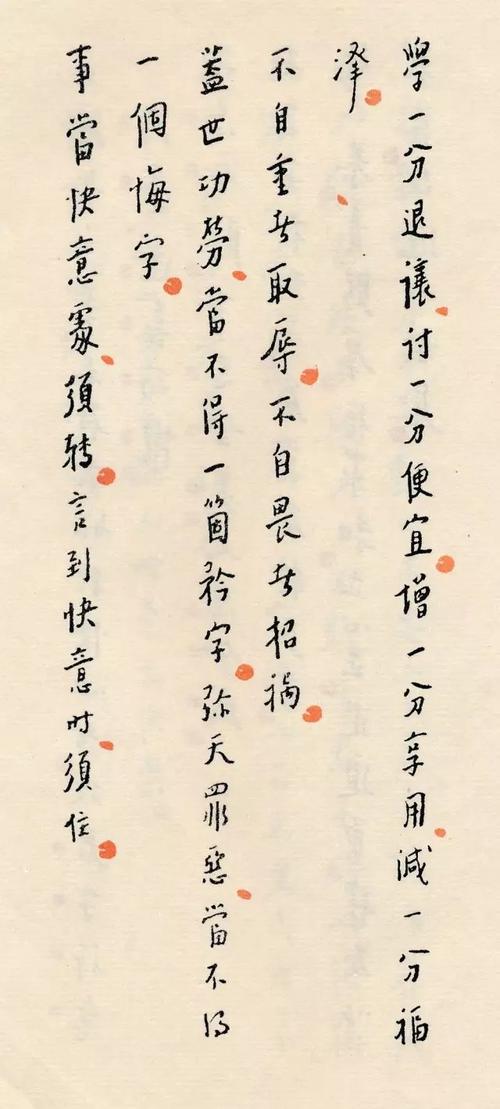 學一分退讓討一分便宜增一分享用減一分福
澤
不自重者取辱不自畏者招禍
蓋世功勞當不得一箇矜字弥天罪惡當不得
一個悔字
事當快意處須轉言到快意时須住